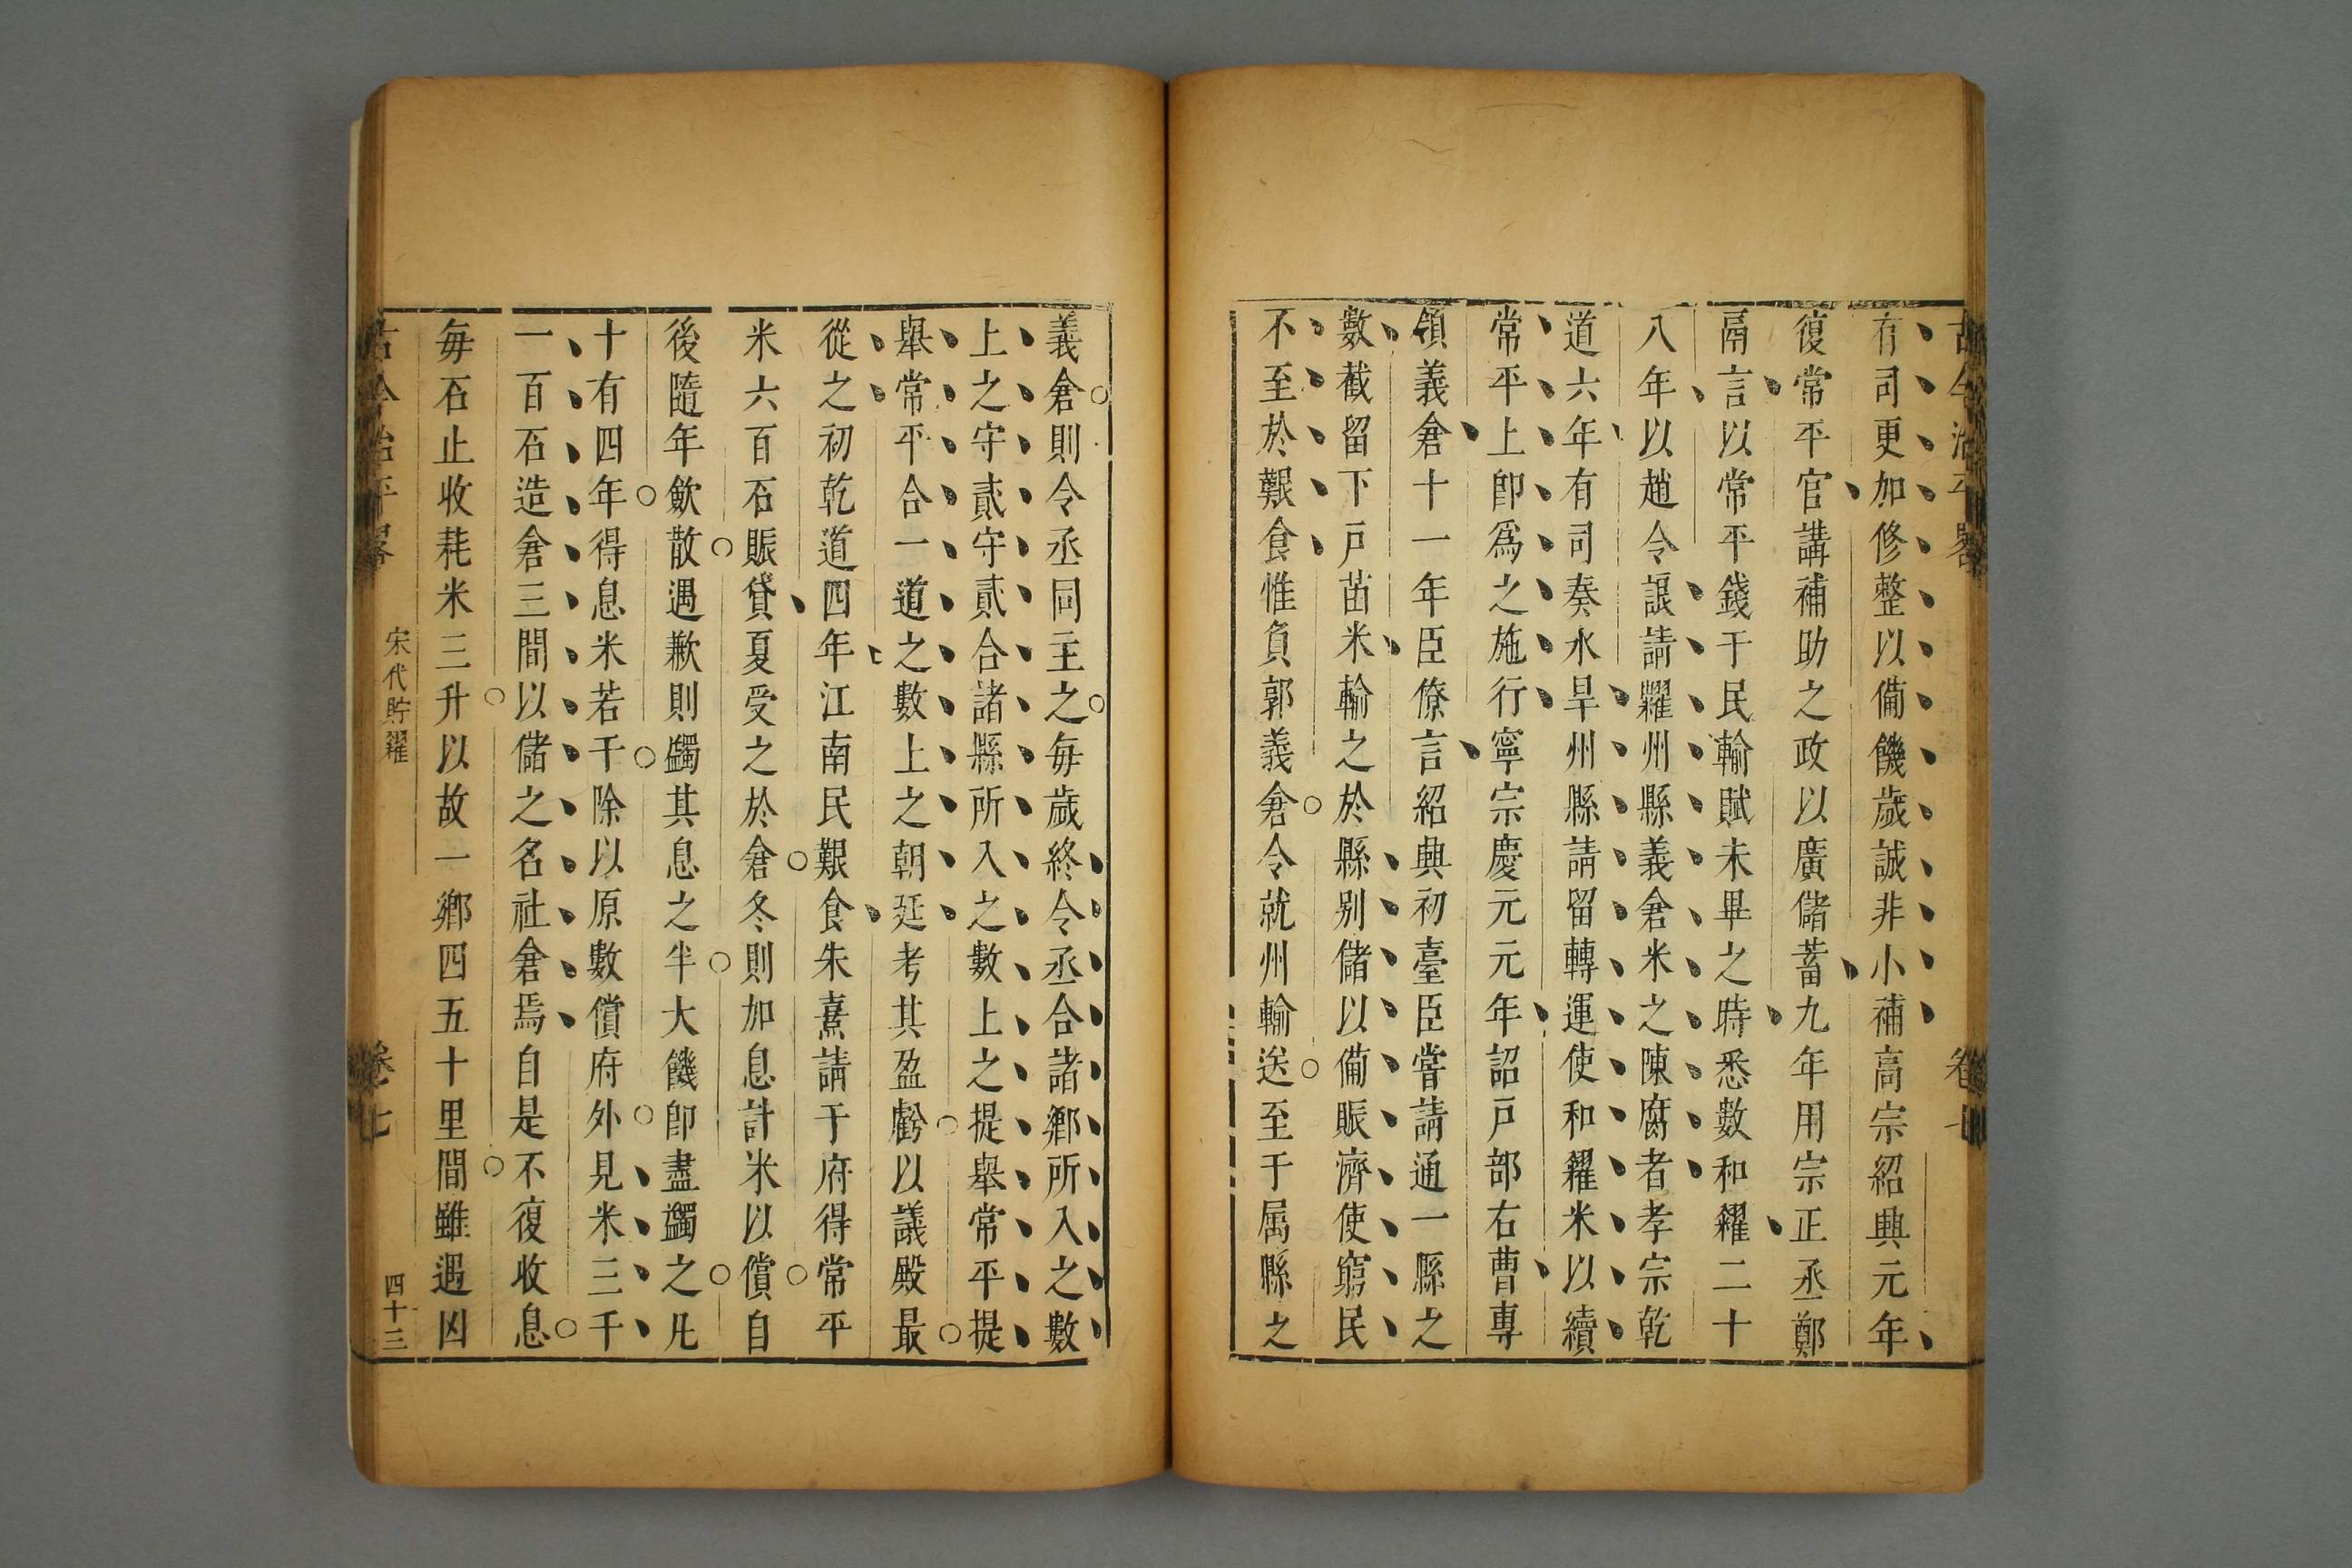 古今治平畧 卷七
有司更加修整以備饑歲誠非小補高宗紹興元年
復常平官講補助之政以廣儲蓄九年用宗正丞鄭
鬲言以常平錢于民輸賦未畢之時悉數和糴二十
八年以趙令詪請糶州縣義倉米之陳腐者孝宗乾
道六年有司奏水旱州縣請留轉運使和糴米以續
常平上卽爲之施行寧宗慶元元年詔戶部右曹專
領義倉十一年臣僚言紹興初臺臣嘗請通一縣之
數截留下戶苗米輸之於縣别儲以備賑濟使窮民
不至於艱食惟負郭義倉令就州輸送至于属縣之
義倉則令丞同主之每歲終令丞合諸鄉所入之數
上之守貳守貳合諸縣所入之數上之提舉常平提
舉常平合一道之數上之朝廷考其盈虧以議殿最
從之初乾道四年江南民艱食朱熹請于府得常平
米六百石賑貸夏受之於倉冬則加息計米以償自
後隨年歛散遇歉則蠲其息之半大饑卽盡蠲之凡
十有四年得息米若干除以原數償府外見米三千
一百石造倉三間以儲之名社倉焉自是不復收息
每石止收耗米三升以故一鄉四五十里間雖遇凶
古今治平畧 宋代貯糴 卷七 四十三